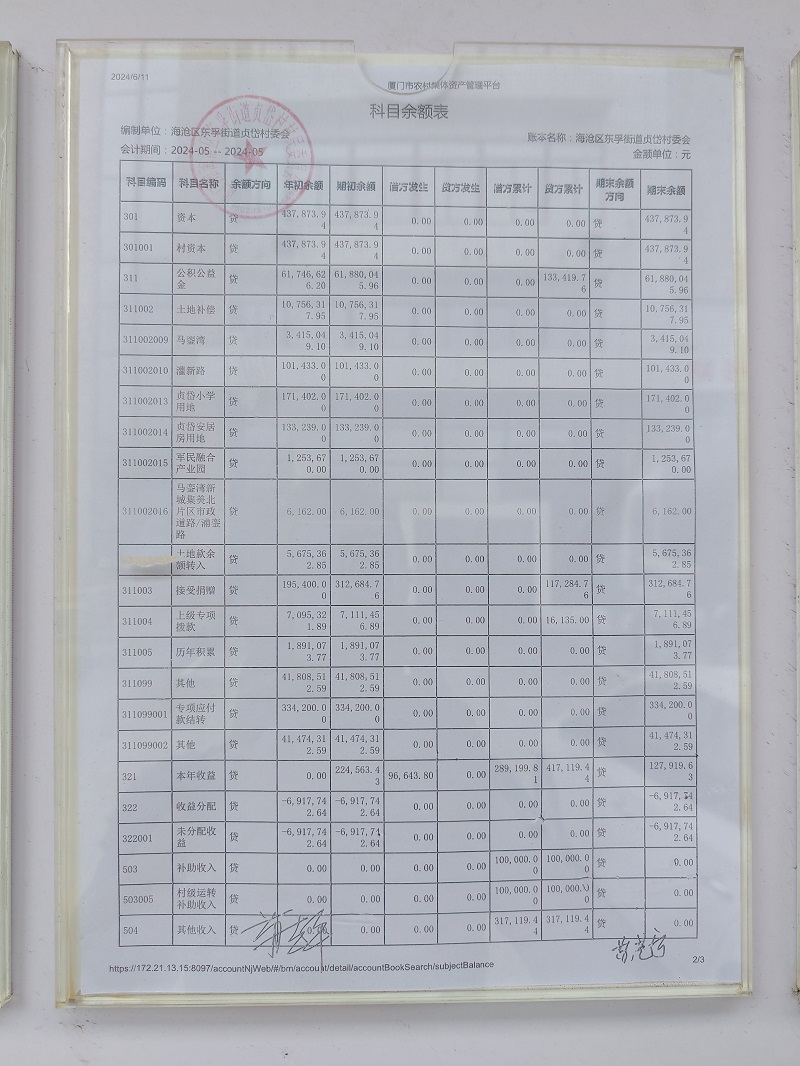 2024/6/11
厦门市农村集体资产管理平台
科目余额表
编制单位：海沧区东孚街道贞岱村委会 账本名称：海沧区东孚街道贞岱村委会
会计期间：2024-05 -- 2024-05 金额单位：元
科目编码 科目名称 余额方向 年初余额 期初余额 借方发生 贷方发生 借方累计 贷方累计 期末余额方向 期末余额
301 资本 贷 437,873.94 437,873.94 0.00 0.00 0.00 0.00 贷 437,873.94
301001 村资本 贷 437,873.94 437,873.94 0.00 0.00 0.00 0.00 贷 437,873.94
311 公积公益金 贷 61,746,626.20 61,880,045.96 0.00 0.00 0.00 133,419.76 贷 61,880,045.96
311002 土地补偿 贷 10,756,317.95 10,756,317.95 0.00 0.00 0.00 0.00 贷 10,756,317.95
311002009 马銮湾 贷 3,415,049.10 3,415,049.10 0.00 0.00 0.00 0.00 贷 3,415,049.10
311002010 灌新路 贷 101,433.00 101,433.00 0.00 0.00 0.00 0.00 贷 101,433.00
311002013 贞岱小学用地 贷 171,402.00 171,402.00 0.00 0.00 0.00 0.00 贷 171,402.00
311002014 贞岱安居房用地 贷 133,239.00 133,239.00 0.00 0.00 0.00 0.00 贷 133,239.00
311002015 军民融合产业园 贷 1,253,670.00 1,253,670.00 0.00 0.00 0.00 0.00 贷 1,253,670.00
311002016 马銮湾新城集美北片区市政道路/浦銮路 贷 6,162.00 6,162.00 0.00 0.00 0.00 0.00 贷 6,162.00
土地款余额转入 贷 5,675,362.85 5,675,362.85 0.00 0.00 0.00 0.00 贷 5,675,362.85
311003 接受捐赠 贷 195,400.00 312,684.76 0.00 0.00 0.00 117,284.76 贷 312,684.76
311004 上级专项拨款 贷 7,095,321.89 7,111,456.89 0.00 0.00 0.00 16,135.00 贷 7,111,456.89
311005 历年积累 贷 1,891,073.77 1,891,073.77 0.00 0.00 0.00 0.00 贷 1,891,073.77
311099 其他 贷 41,808,512.59 41,808,512.59 0.00 0.00 0.00 0.00 贷 41,808,512.59
311099001 专项应付款结转 贷 334,200.00 334,200.00 0.00 0.00 0.00 0.00 贷 334,200.00
311099002 其他 贷 41,474,312.59 41,474,312.59 0.00 0.00 0.00 0.00 贷 41,474,312.59
321 本年收益 贷 0.00 224,563.43 96,643.80 0.00 289,199.81 417,119.44 贷 127,919.63
322 收益分配 贷 -6,917,742.64 -6,917,742.64 0.00 0.00 0.00 0.00 贷 -6,917,742.64
322001 未分配收益 贷 -6,917,742.64 -6,917,742.64 0.00 0.00 0.00 0.00 贷 -6,917,742.64
503 补助收入 贷 0.00 0.00 0.00 0.00 100,000.00 100,000.00 贷 0.00
503005 村级运转补助收入 贷 0.00 0.00 0.00 0.00 100,000.00 100,000.00 贷 0.00
504 其他收入 贷 0.00 0.00 0.00 0.00 317,119.44 317,119.44 贷 0.00
https://172.21.13.15:8097/accountNjWeb/#/brn/account/detail/accountBookSearch/subjectBalance 2/3